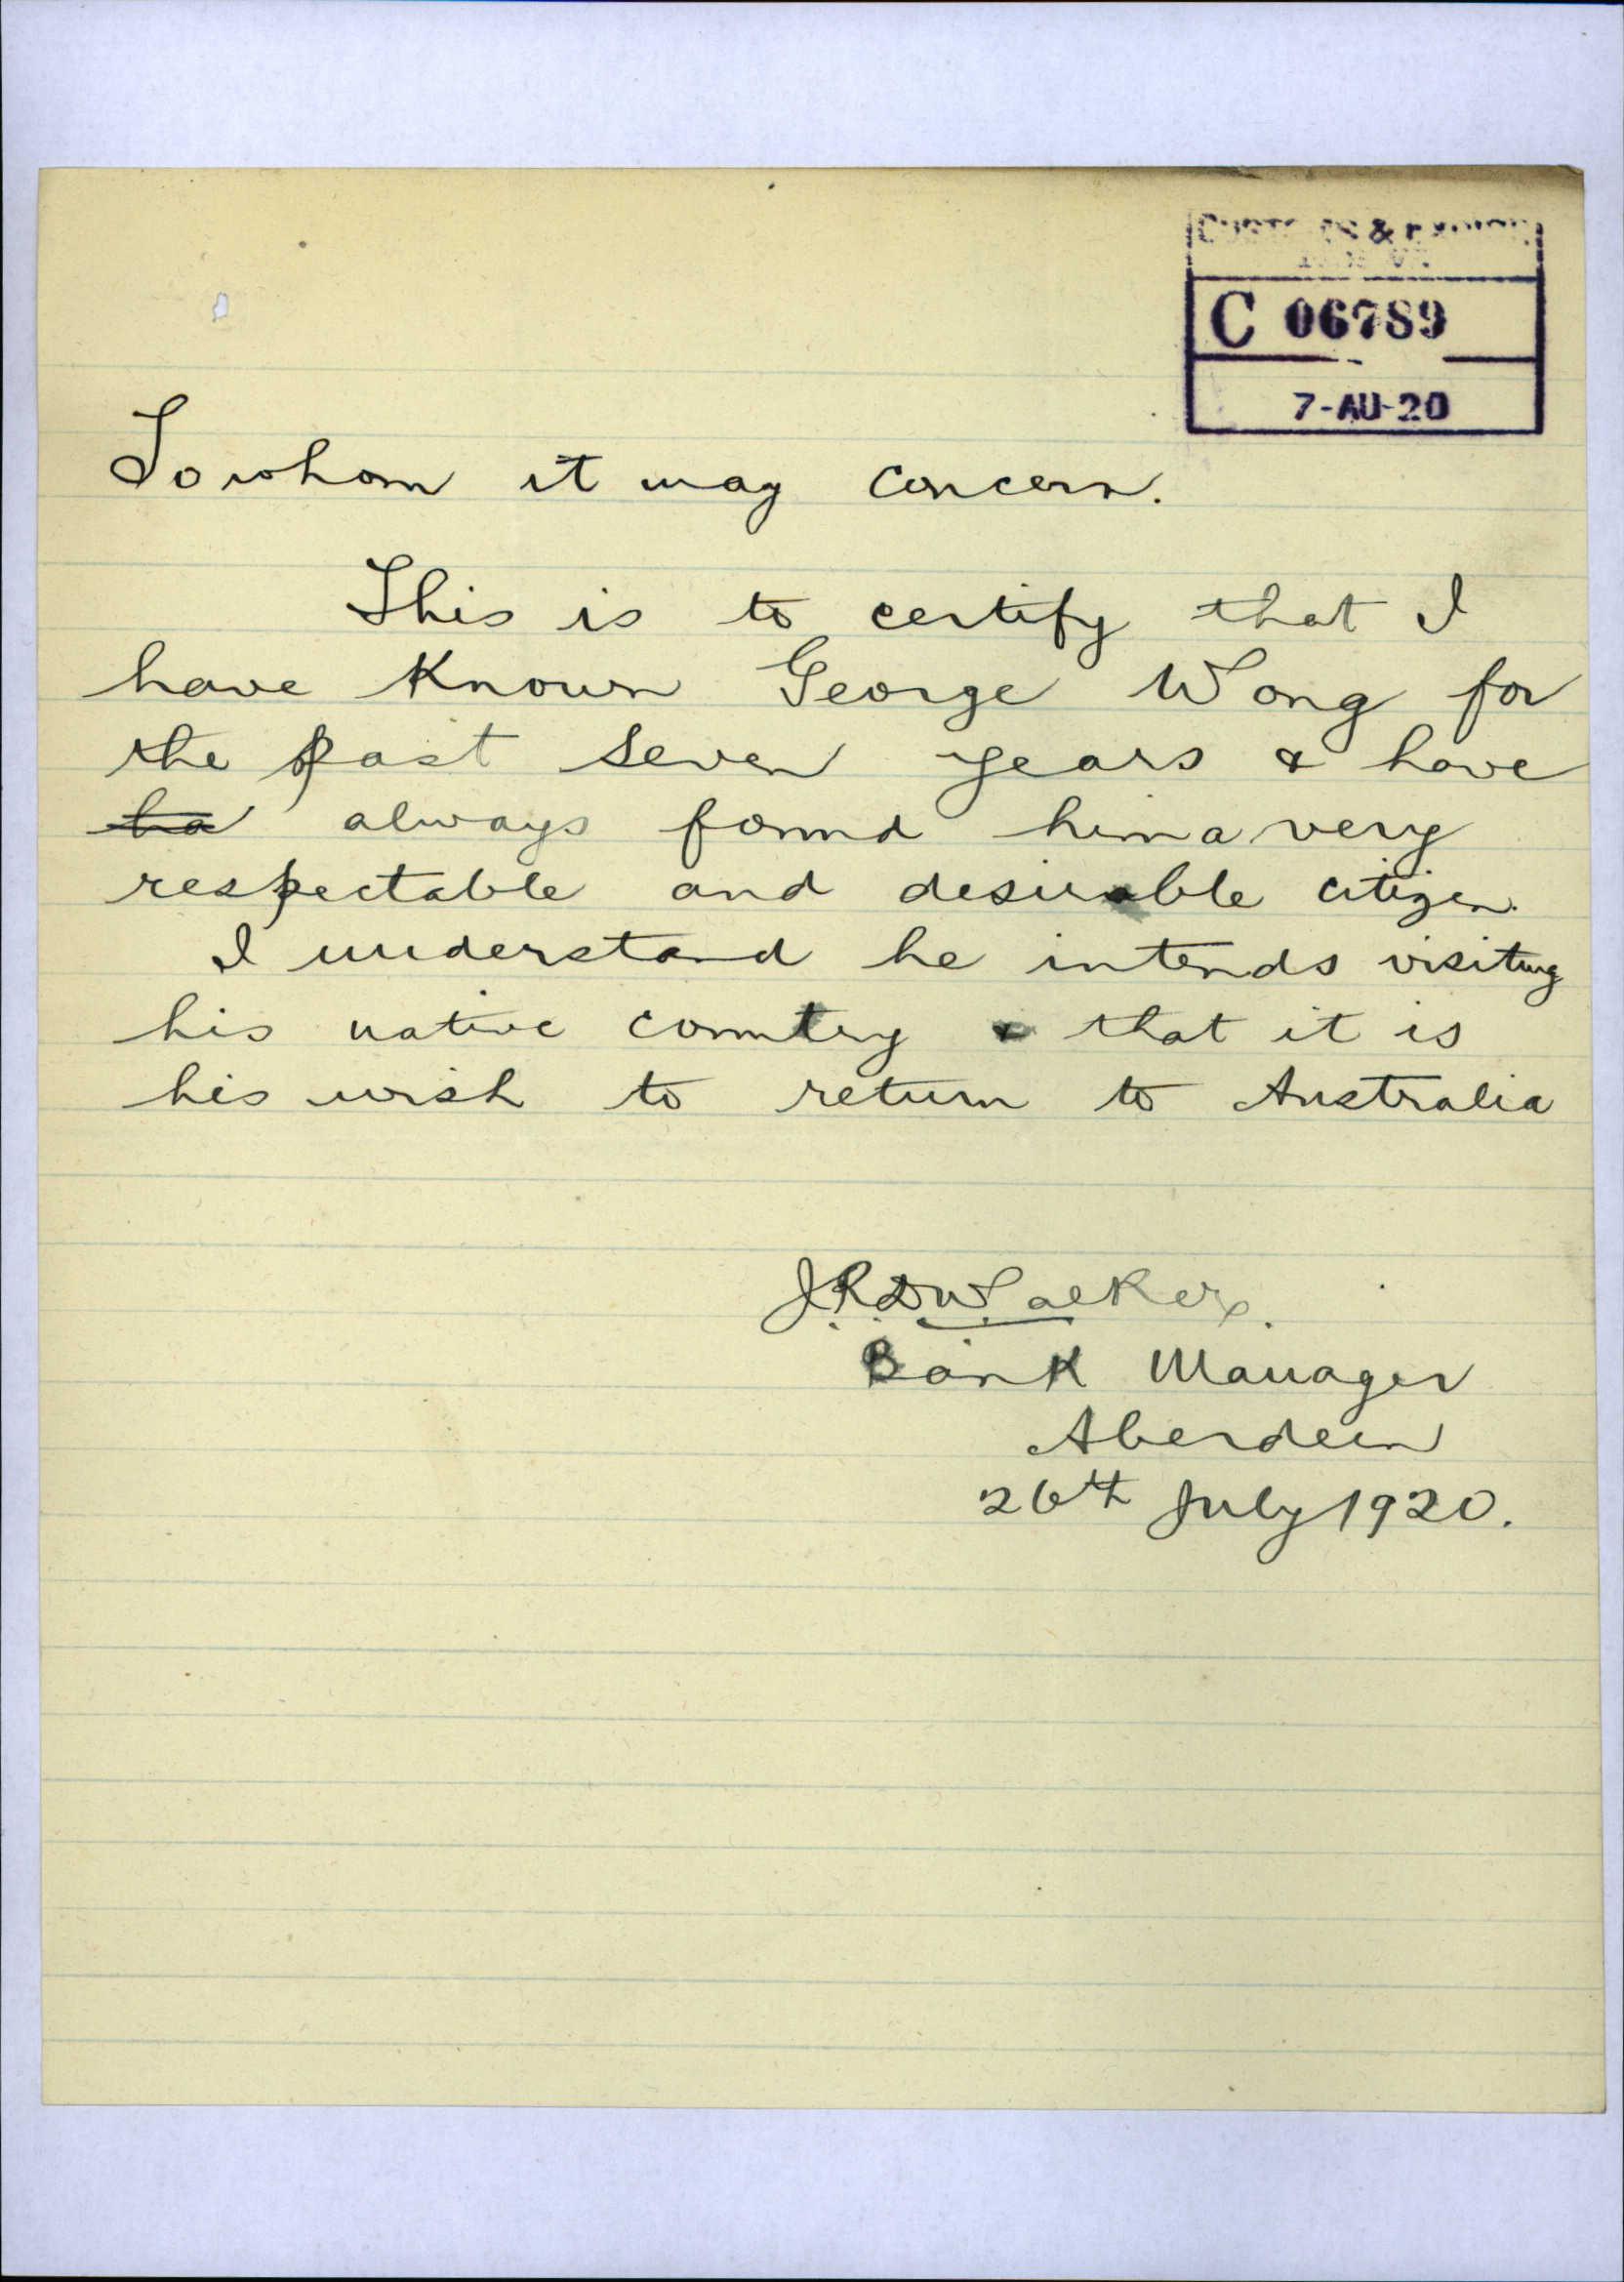 CUSTOMS & EXCISE
C 06789
7-AU-20
To whom it may concern.
This is to certify that I
have known George Wong for
the past seven years & have
ha always found him a very
respectable and desirable citizen.
I understand he intends visiting
his native country & that it is
his wish to return to Australia
J.R.D. Walker.
Bank Manager
Aberdeen
26th July 1920.